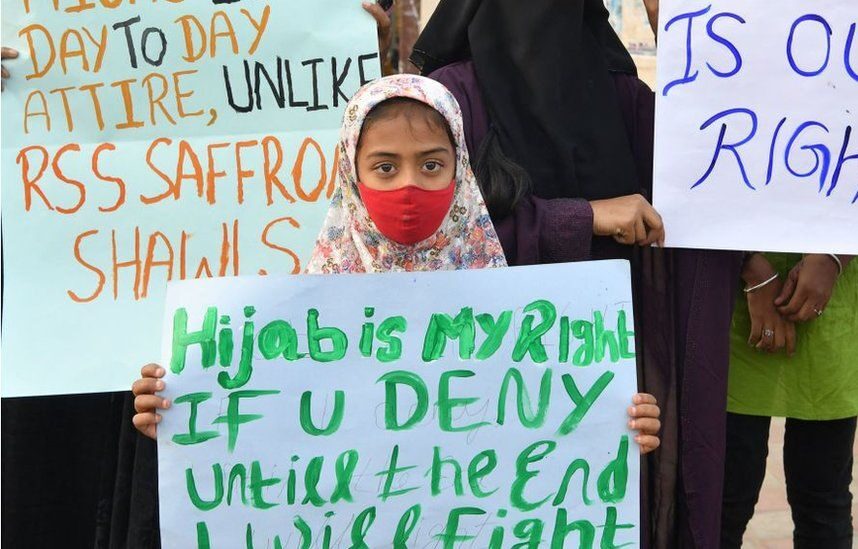 DAY TO DAY
ATTIRE, UNLIKE
RSS SAFFRON
SHAWLS
IS OU
RIGH
Hijab is My Right
IF U DENY
Untill the End
I Will Fight